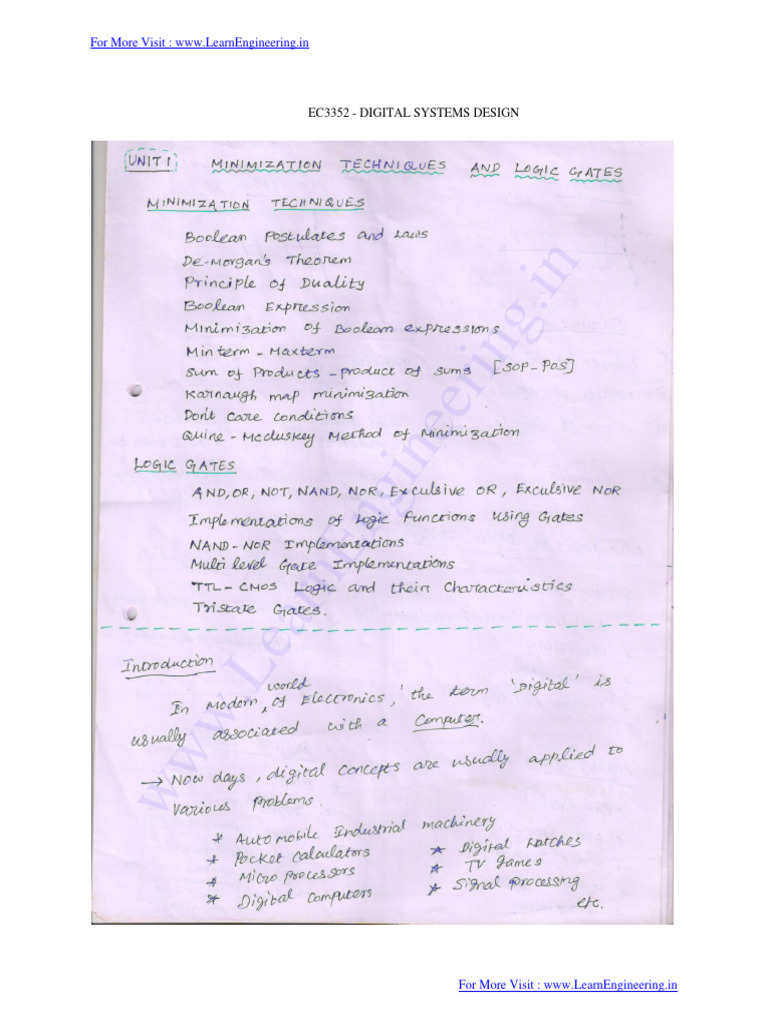 For More Visit : www.LearnEngineering.in
EC3352 - DIGITAL SYSTEMS DESIGN
UNIT 1 MINIMIZATION TECHNIQUES AND LOGIC GATES
MINIMIZATION TECHNIQUES
Boolean Postulates and Laws
De-Morgan's Theorem
Principle of Duality
Boolean Expression
Minimization of Boolean expressions
Minterm - Maxterm
Sum of Products - product of sums [SOP-POS]
Karnaugh map minimization
Don't Care Conditions
Quine - McCluskey Method of Minimization
LOGIC GATES
AND, OR, NOT, NAND, NOR, Exculsive OR, Exculsive NOR
Implementations of Logic Functions using Gates
NAND-NOR Implementations
Multi level Gate Implementations
TTL-CMOS Logic and their Characteristics
Tristate Gates.
Introduction
In Modern world of Electronics, the term 'Digital' is
usually associated with a Computer.
→ Now days, digital concepts are usually applied to
various problems.
* Automobile Industrial machinery
* Pocket calculators * Digital Watches
* Micro processors * TV games
* Digital Computers * Signal processing
etc.
www.LearnEngineering.in
For More Visit : www.LearnEngineering.in